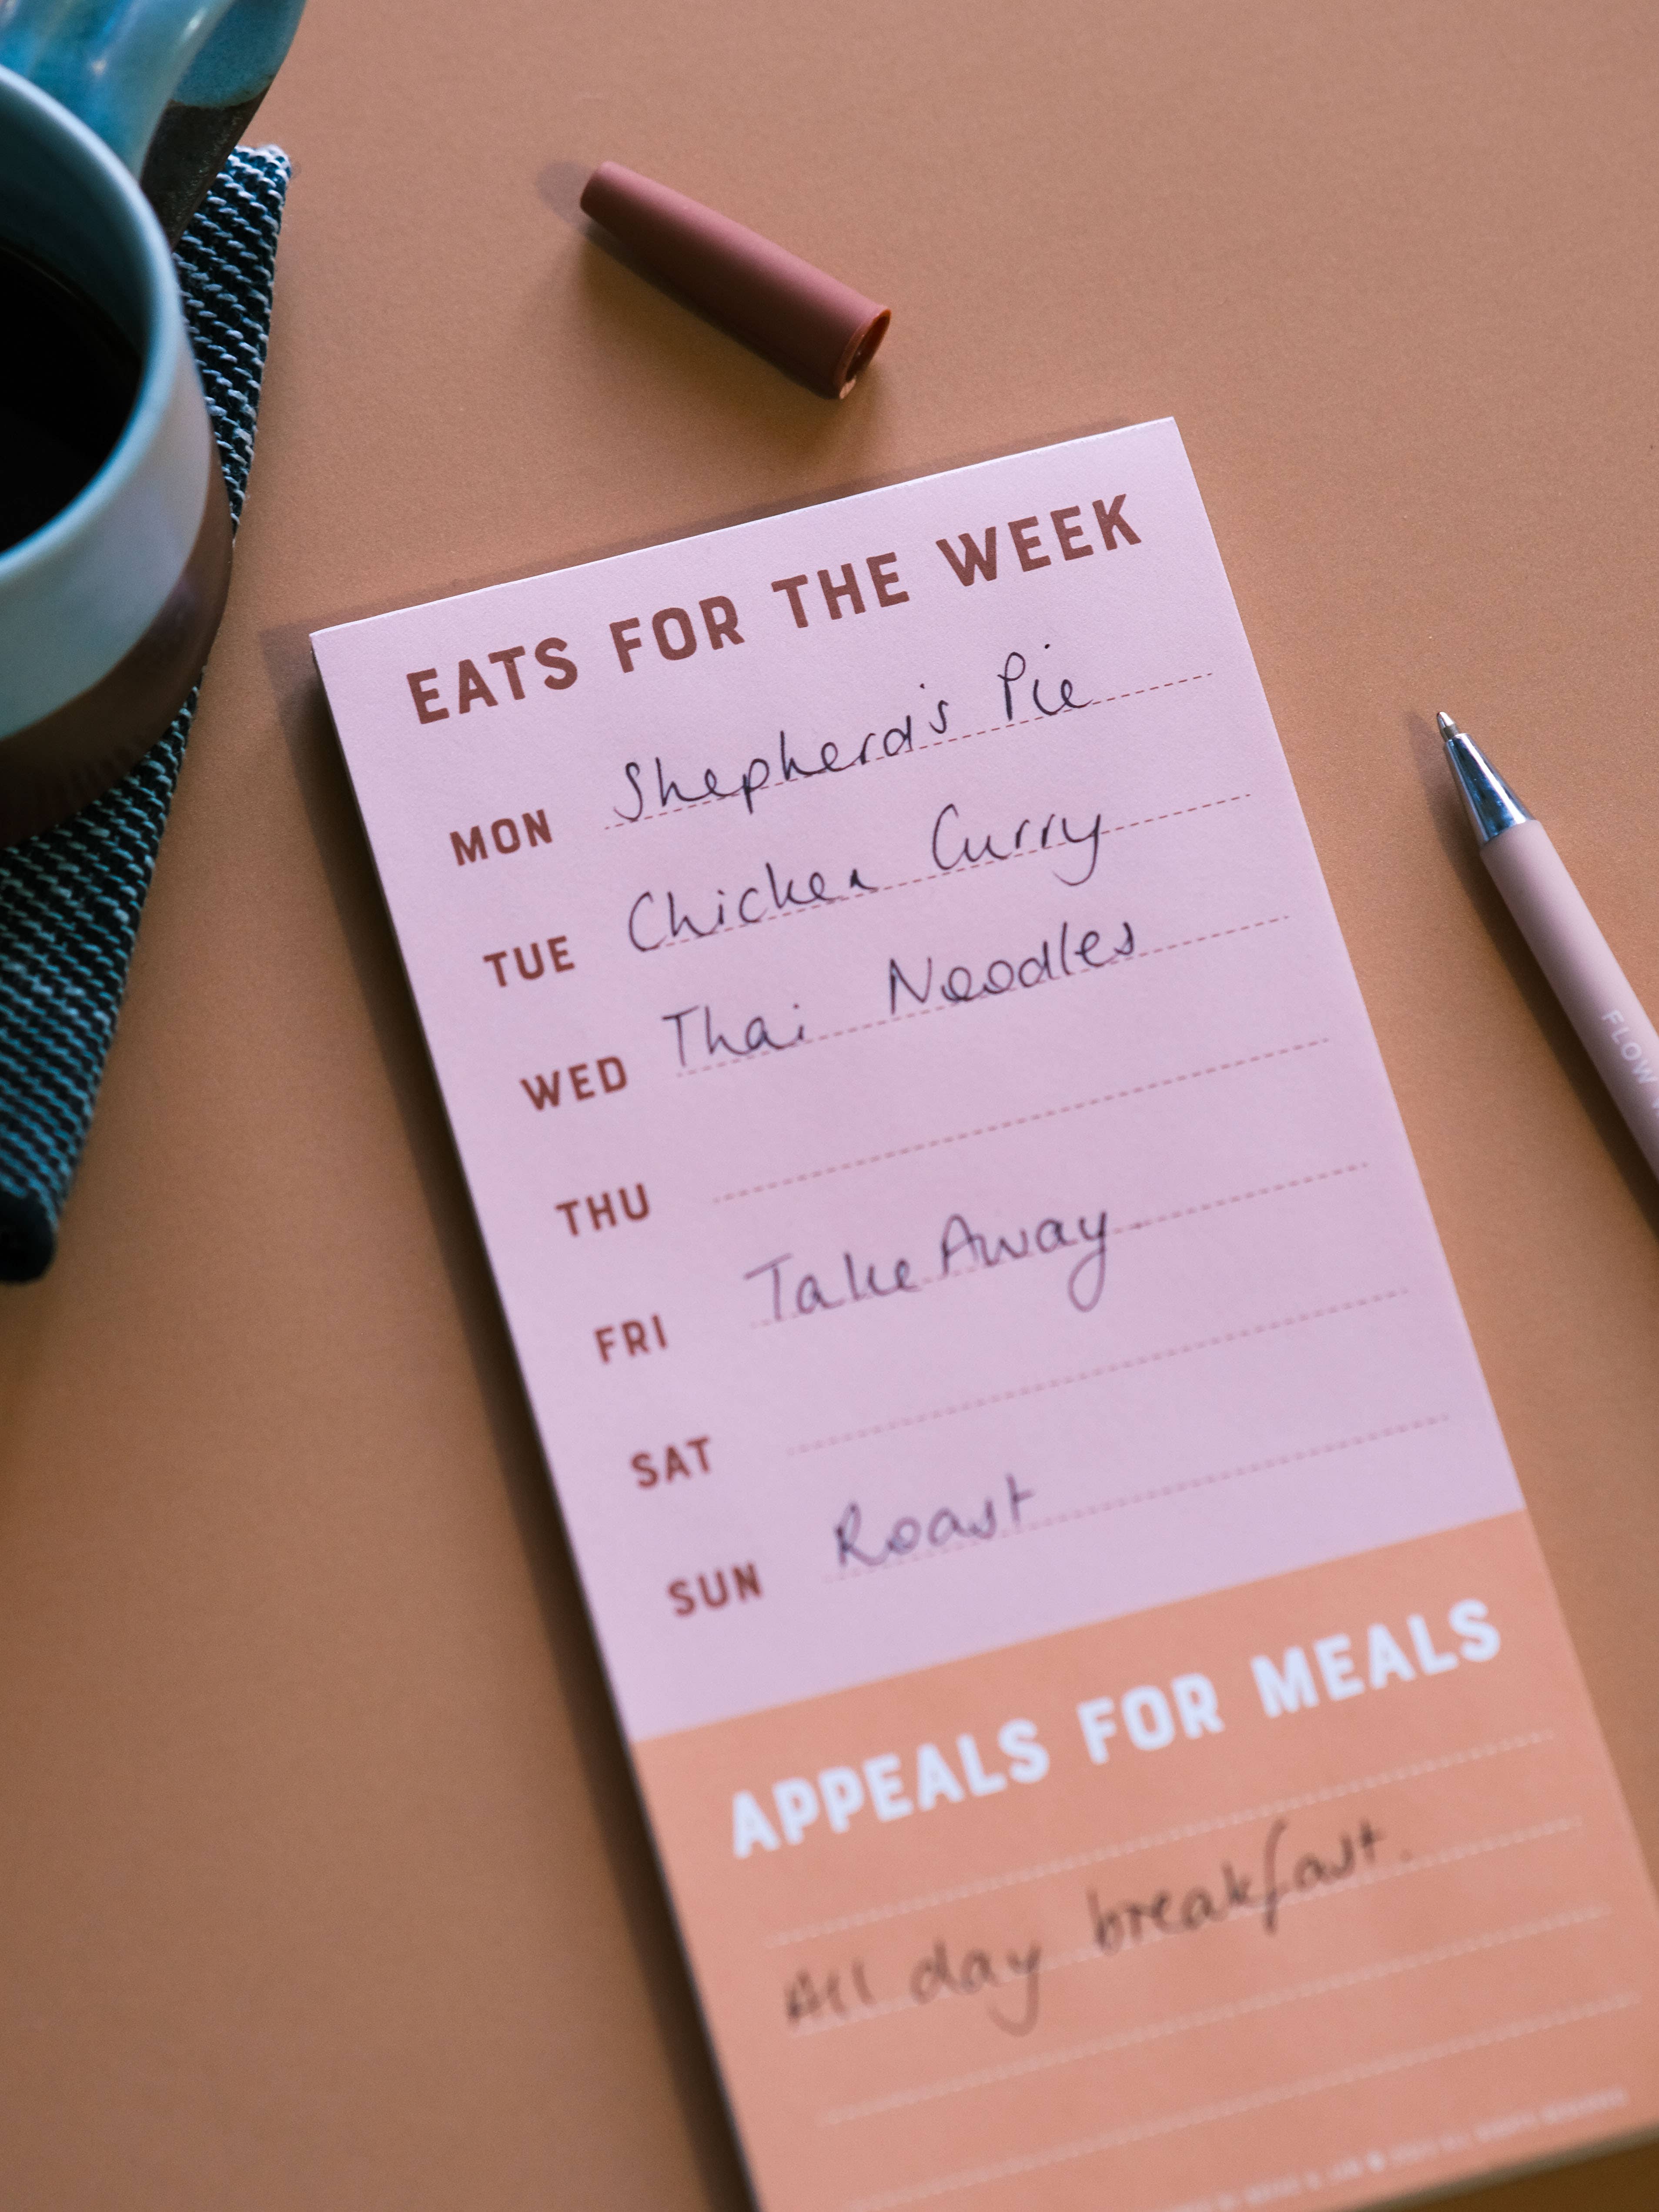 EATS FOR THE WEEK
MON Shepherd's Pie
TUE Chicken Curry
WED Thai Noodles
THU
FRI Take Away.
SAT
SUN Roast
APPEALS FOR MEALS
All day breakfast.
FLOW